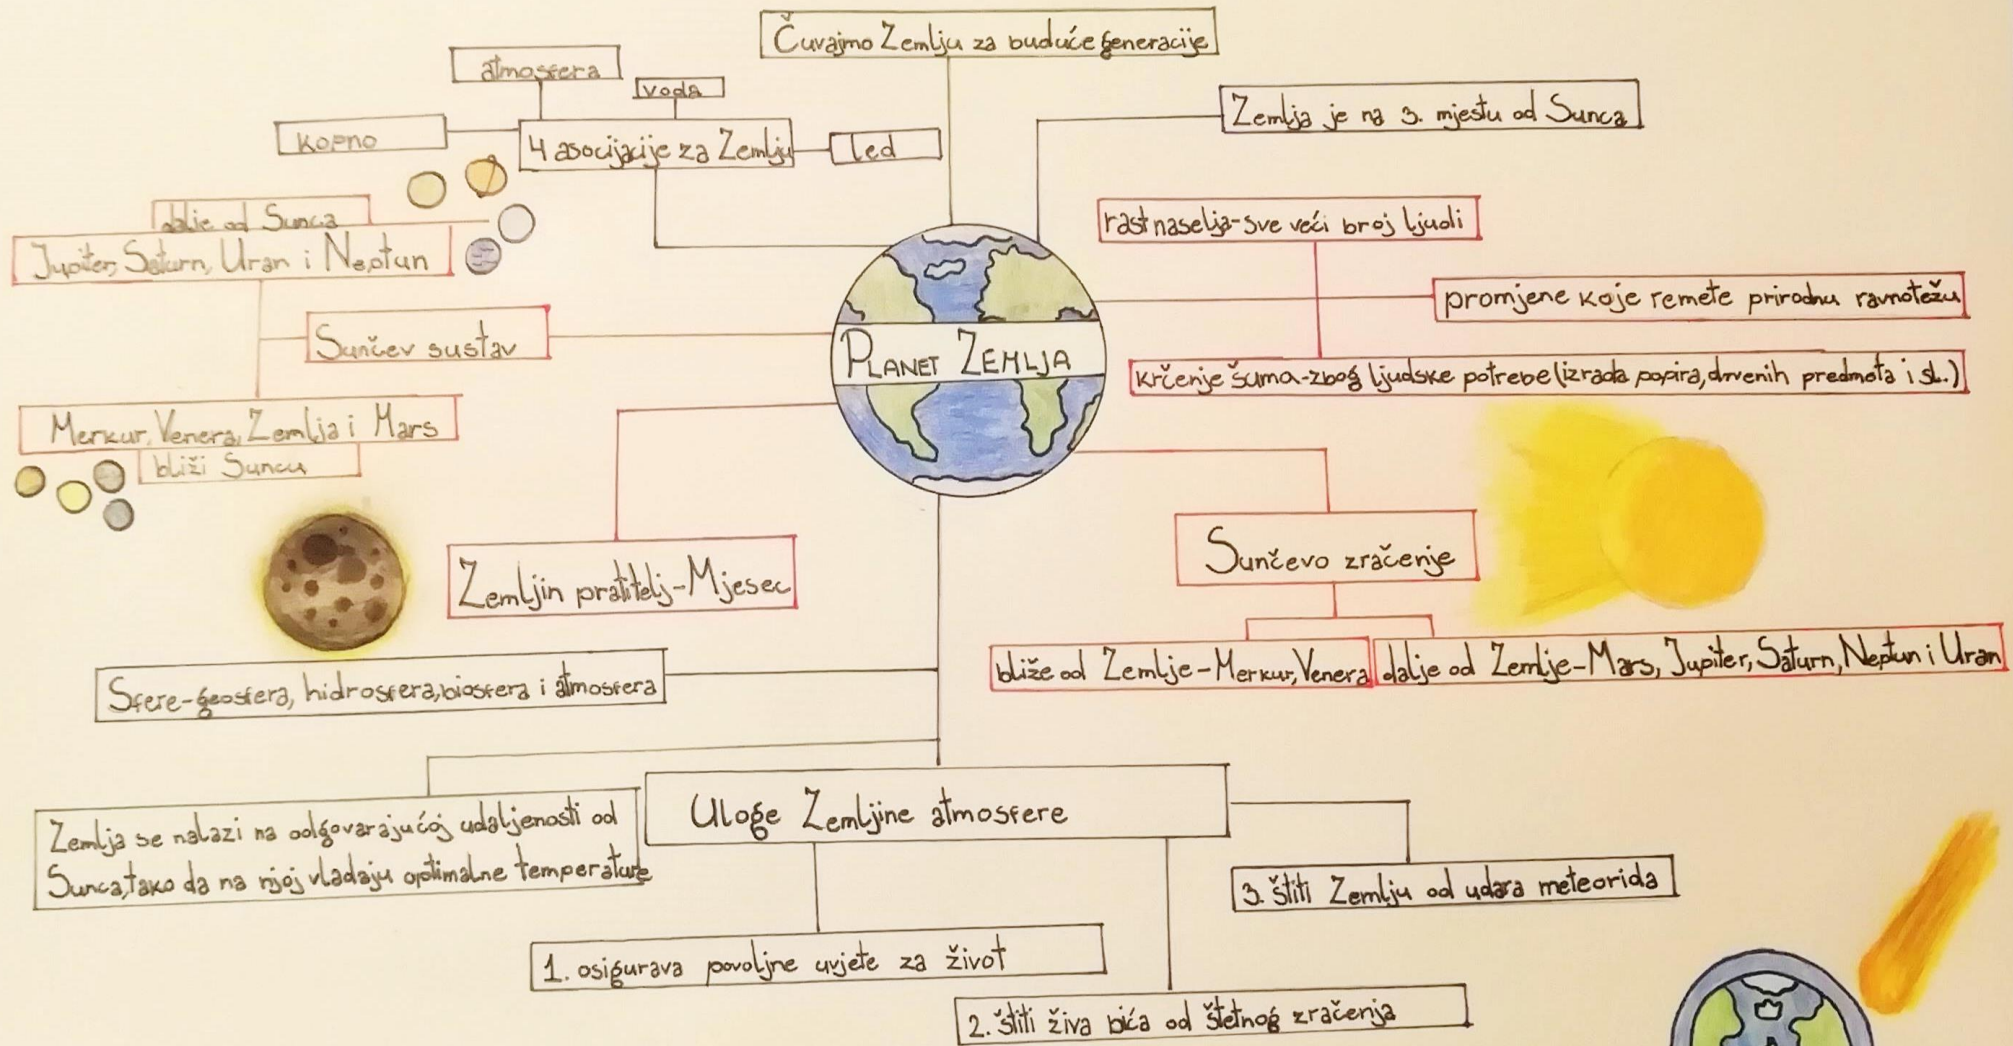 Čuvajmo Zemlju za buduće generacije
atmosfera
voda
kopno
4 asocijacije za Zemlju
led
Zemlja je na 3. mjestu od Sunca
dalje od Sunca
Jupiter, Saturn, Uran i Neptun
rast naselja-sve veći broj ljudi
promjene koje remete prirodnu ravnotežu
Sunčev sustav
PLANET ZEMLJA
krčenje šuma-zbog ljudske potrebe (izrada papira, drvenih predmeta i sl.)
Merkur, Venera, Zemlja i Mars
bliži Suncu
Zemljin pratitelj-Mjesec
Sunčevo zračenje
bliže od Zemlje-Merkur, Venera
dalje od Zemlje-Mars, Jupiter, Saturn, Neptun i Uran
Sfere-geosfera, hidrosfera, biosfera i atmosfera
Zemlja se nalazi na odgovarajućoj udaljenosti od
Sunca, tako da na njoj vladaju optimalne temperature
Uloge Zemljine atmosfere
1. osigurava povoljne uvjete za život
2. štiti živa bića od štetnog zračenja
3. štiti Zemlju od udara meteorida